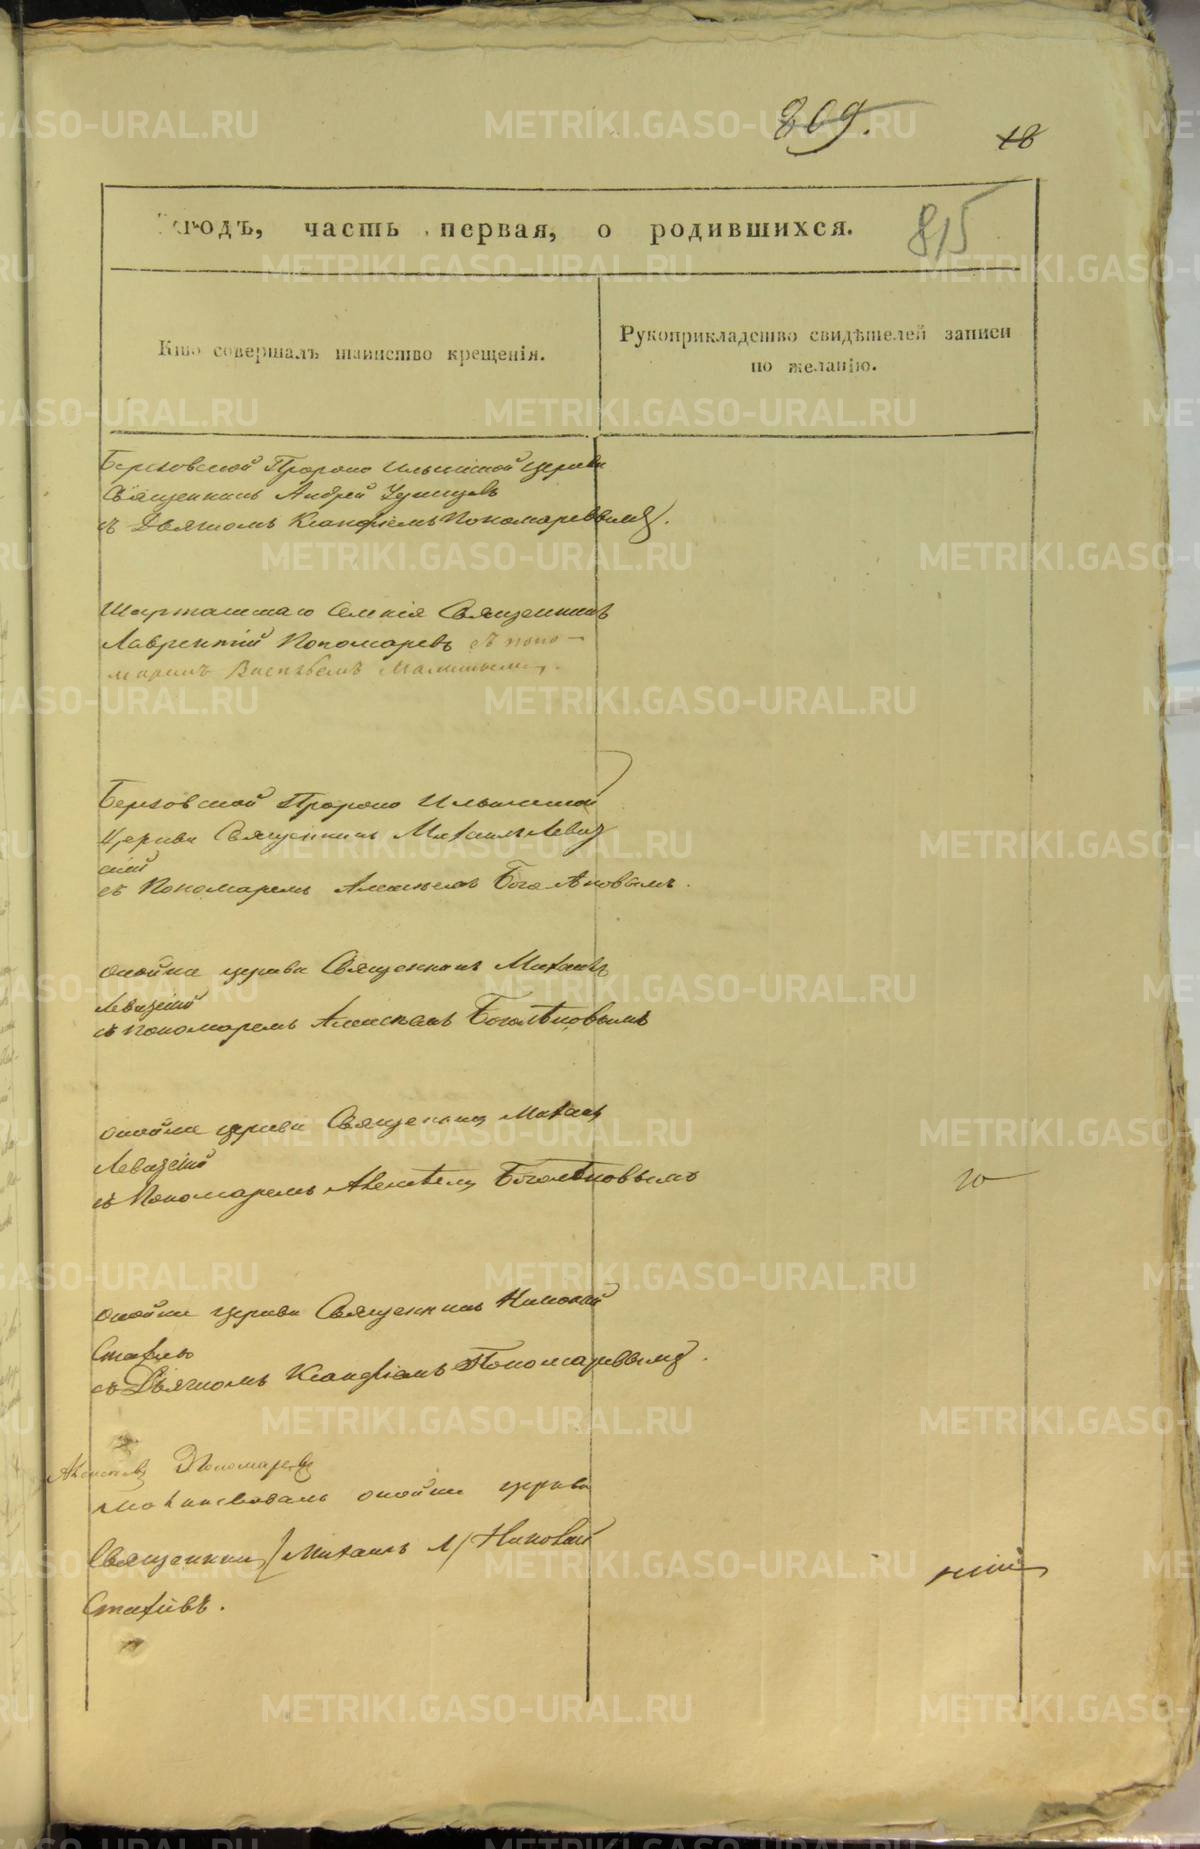 809.
18
815
годъ, часть первая, о родившихся.
Кто совершалъ таинство крещенія.
Рукоприкладство свидѣтелей записи
по желанію.
Березовской Пророко Ильинской церкви
Священникъ Андрей
съ Дьячкомъ Пономаревымъ.
Шарташскаго Священникъ
Лаврентій Пономаревъ съ поно-
маремъ
Березовской Пророко Ильинской
Церкви Священникъ Михаилъ Леви
скій
съ Пономаремъ Алексѣемъ Боголѣповымъ.
оной же церкви Священникъ Михаилъ
Левицкій
съ пономаремъ Алексѣемъ Боголѣповымъ
оной же церкви Священникъ Михаилъ
Левицкій
съ Пономаремъ Алексѣемъ Боголѣповымъ
оной же церкви Священникъ Николай
съ Дьячкомъ Пономаревымъ.
Пономаревъ
оной же церкви
Священникъ Михаилъ Л Николай
METRIKI.GASO-URAL.RU